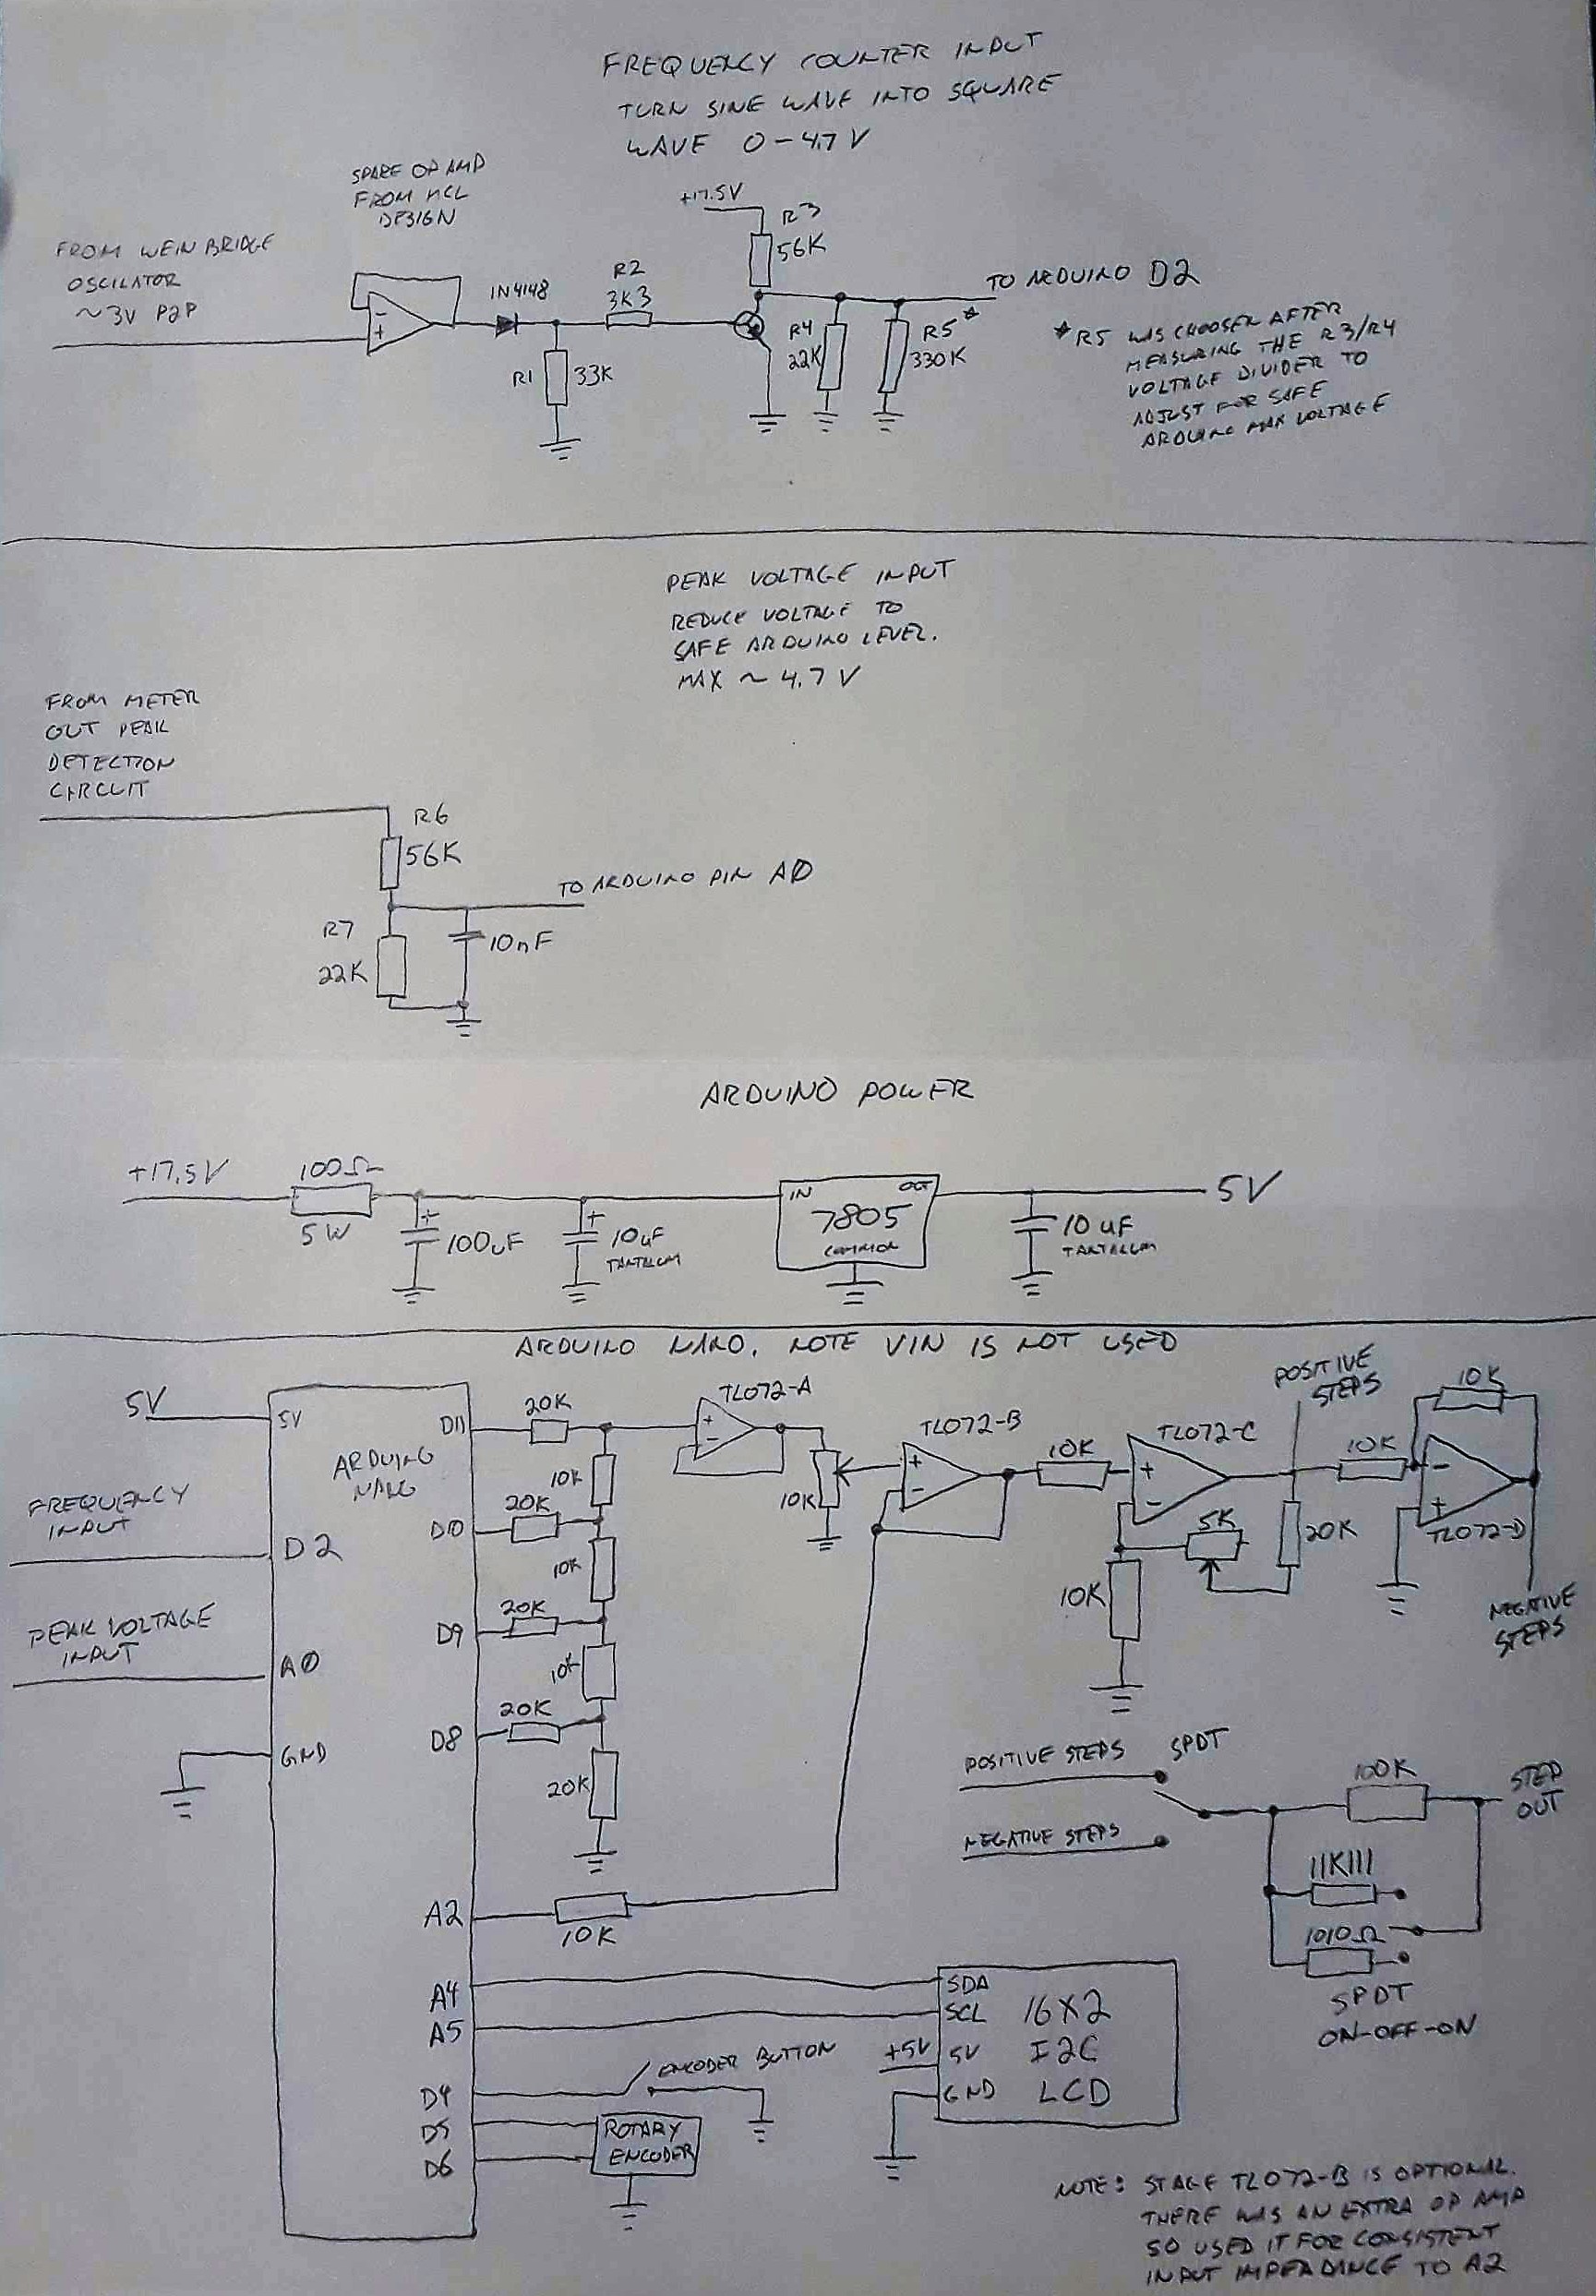 FREQUENCY COUNTER INPUT
TURN SINE WAVE INTO SQUARE
WAVE 0-4.7 V
SPARE OP AMP
FROM MCL
DESIGN
FROM WEIN BRIDGE
OSCILATOR
~3V P2P
1N4148
R2
3K3
R1
33K
+17.5V
R3
56K
R4
22K
R5*
330K
TO ARDUINO D2
*R5 WAS CHOOSEN AFTER
MEASURING THE R3/R4
VOLTAGE DIVIDER TO
ADJUST FOR SAFE
ARDUINO MAX VOLTAGE
PEAK VOLTAGE INPUT
REDUCE VOLTAGE TO
SAFE ARDUINO LEVEL.
MAX ~ 4.7 V
FROM METER
OUT PEAK
DETECTION
CIRCUIT
R6
56K
TO ARDUINO PIN A0
R7
22K
10nF
ARDUINO POWER
+17.5V
100Ω
5W
+
100uF
+
10uF
TANTALUM
IN
OUT
7805
COMMON
5V
10uF
TANTALUM
ARDUINO NANO. NOTE VIN IS NOT USED
5V
5V
ARDUINO
NANO
FREQUENCY
INPUT
D2
PEAK VOLTAGE
INPUT
A0
GND
D11
20K
10K
D10
20K
10K
D9
20K
10K
D8
20K
20K
TL072-A
+
-
10K
TL072-B
+
-
10K
TL072-C
+
-
5K
10K
20K
POSITIVE
STEPS
10K
10K
-
+
TL072-D
NEGATIVE
STEPS
POSITIVE STEPS
SPDT
NEGATIVE STEPS
100K
STEP
OUT
11K111
1010Ω
SPDT
ON-OFF-ON
A2
10K
A4
A5
SDA
SCL
16X2
+5V
5V
I2C
GND
LCD
D4
ENCODER BUTTON
D5
D6
ROTARY
ENCODER
NOTE: STAGE TL072-B IS OPTIONAL.
THERE WAS AN EXTRA OP AMP
SO USED IT FOR CONSISTENT
INPUT IMPEDANCE TO A2